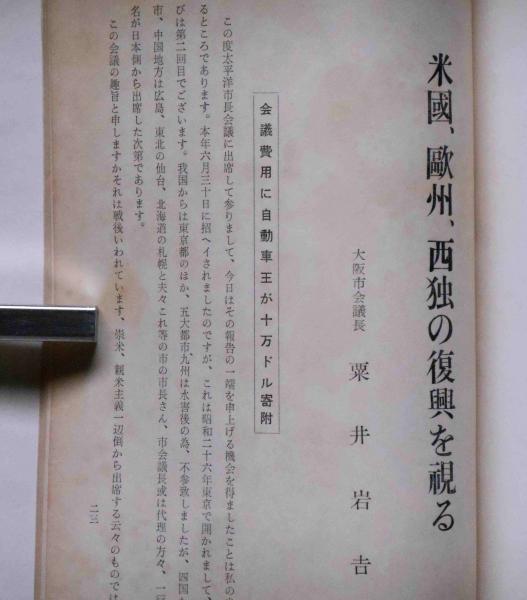 米國、歐州、西独の復興を視る
大阪市会議長　粟井岩吉
会議費用に自動車王が十万ドル寄附
この度太平洋市長会議に出席して参りまして、今日はその報告の一端を申上げる機会を得ましたことは私の
るところであります。本年六月三十日に招ヘイされましたのですが、これは昭和二十六年東京で開かれまして、
びは第二回目でございます。我国からは東京都のほか、五大都市、九州は水害後の為、不参致しましたが、四国
市、中国地方は広島、東北の仙台、北海道の札幌と夫々これ等の市の市長さん、市会議長或は代理の方々、一
名が日本側から出席した次第であります。
この会議の趣旨と申しますかそれは戦後いわれています、崇米、親米主義一辺倒から出席する云々のものでは
二三